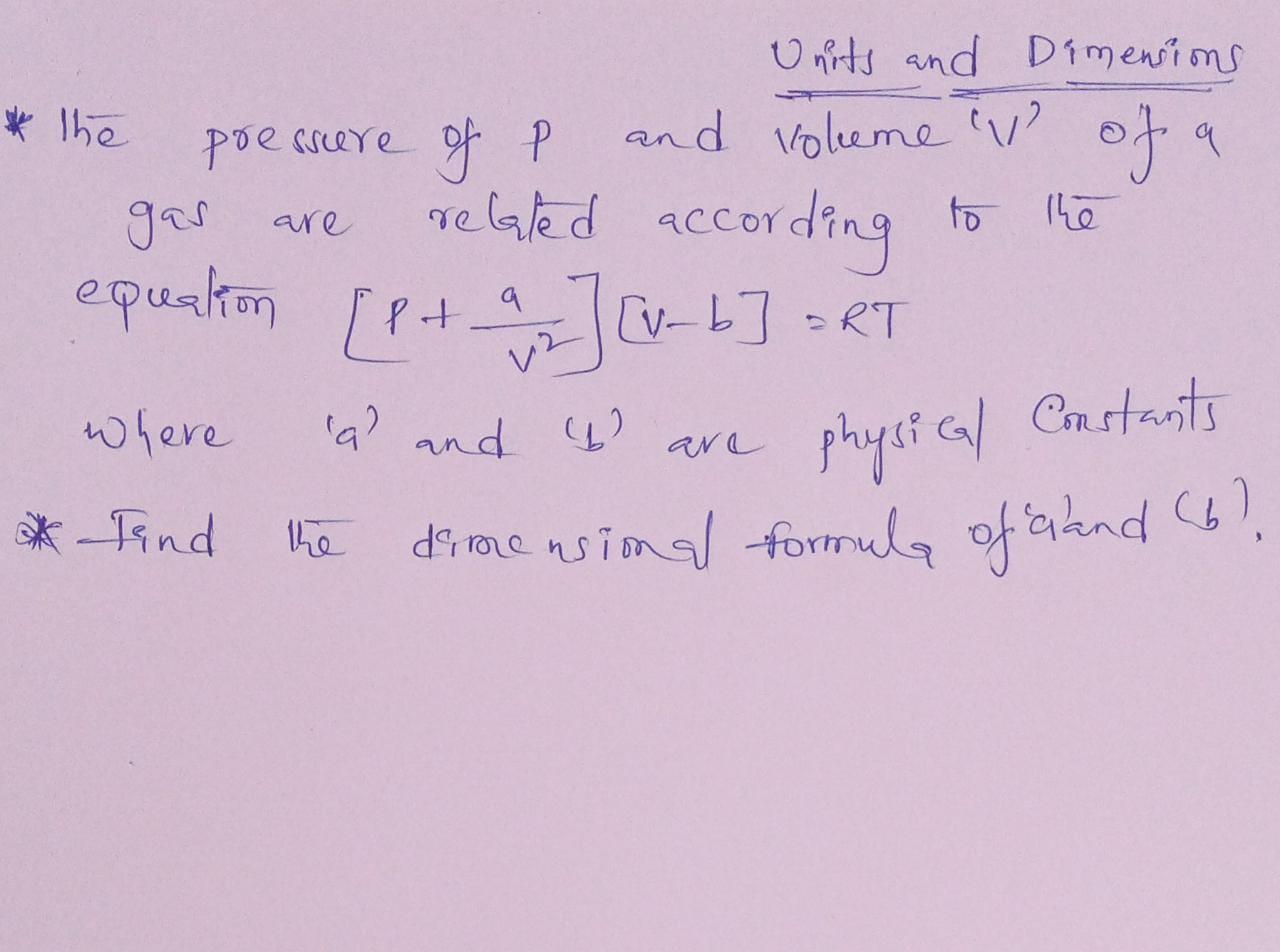 Units and Dimensions
* The pressure of P and volume 'V' of a
gas are related according to the
equation [P + a/V²] [V-b] = RT
where 'a' and 'b' are physical Constants
* Find the dimensional formula of 'a' and 'b'.